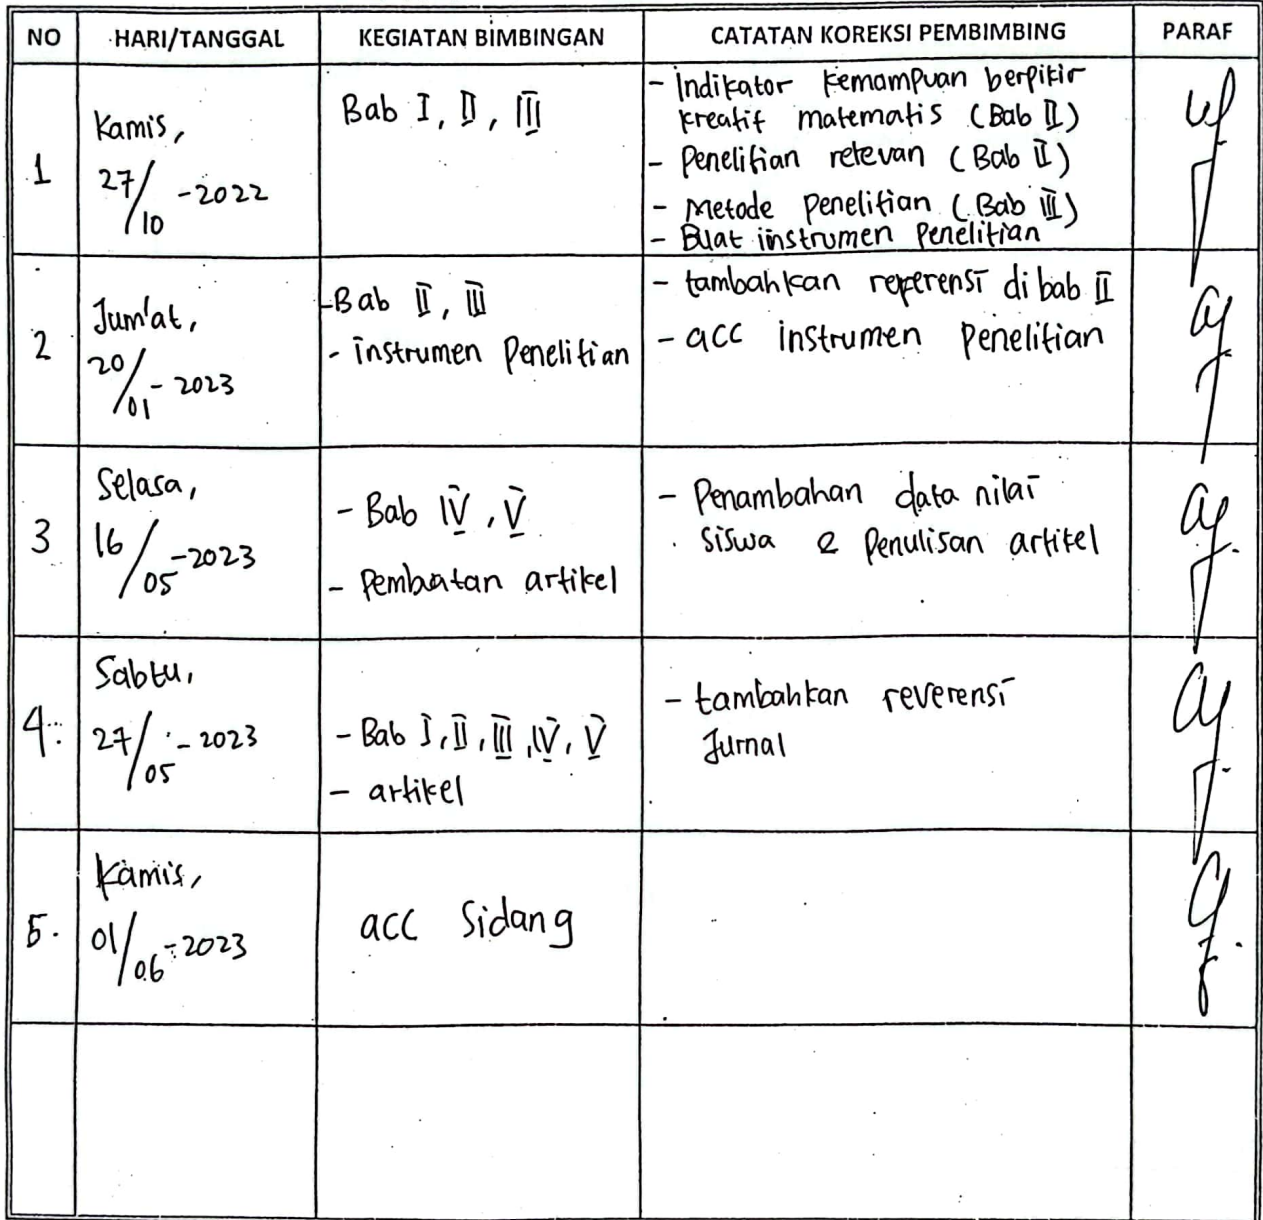 NO HARI/TANGGAL KEGIATAN BIMBINGAN CATATAN KOREKSI PEMBIMBING PARAF
1
Kamis,
27/10-2022
Bab I, II, III
- Indikator kemampuan berpikir
kreatif matematis (Bab II)
- Penelitian relevan (Bab II)
- Metode Penelitian (Bab III)
- Buat instrumen Penelitian
2
Jum'at,
20/01-2023
-Bab II, III
- instrumen Penelitian
- tambahkan reperensi di bab II
- acc instrumen Penelitian
3
Selasa,
16/05-2023
- Bab IV, V
- Pembuatan artikel
- Penambahan data nilai
siswa & Penulisan artikel
4.
Sabtu,
27/05-2023
- Bab I, II, III, IV, V
- artikel
- tambahkan reverensi
Jurnal
5.
Kamis,
01/06-2023
acc Sidang